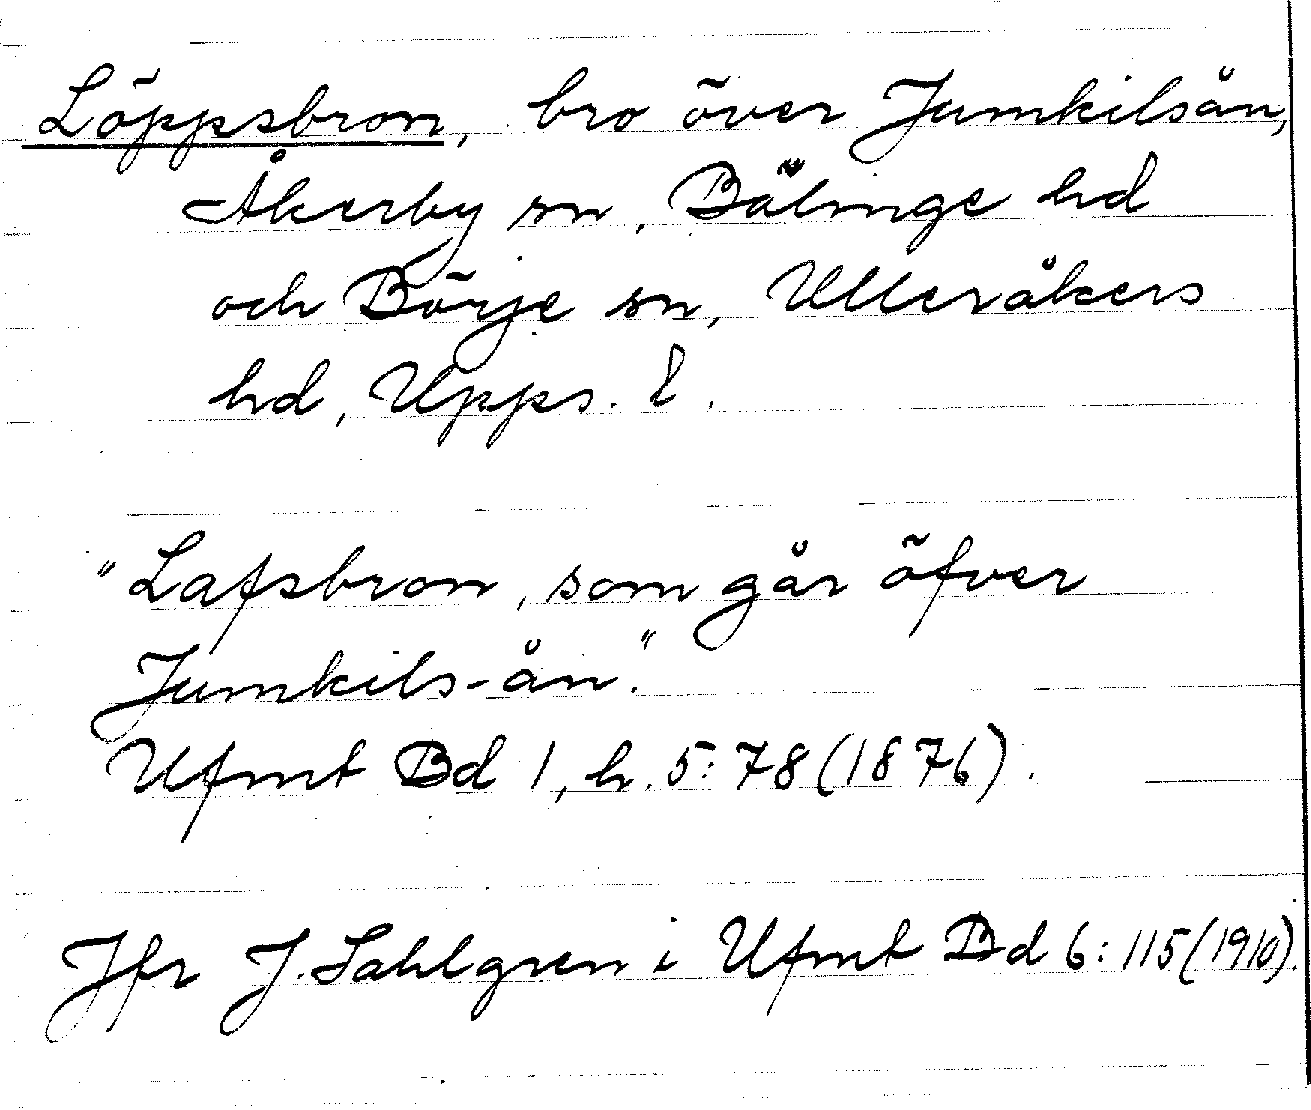 Löppsbron, bro över Jumkilsån,
Åkerby sn, Bälinge hd
och Börje sn, Ulleråkers
hd, Upps. l.
"Lafsbron, som går öfver
Jumkils-ån."
Ufmt Bd 1, h. 5:78 (1876).
Jfr J. Sahlgren i Ufmt Bd 6:115 (1910).